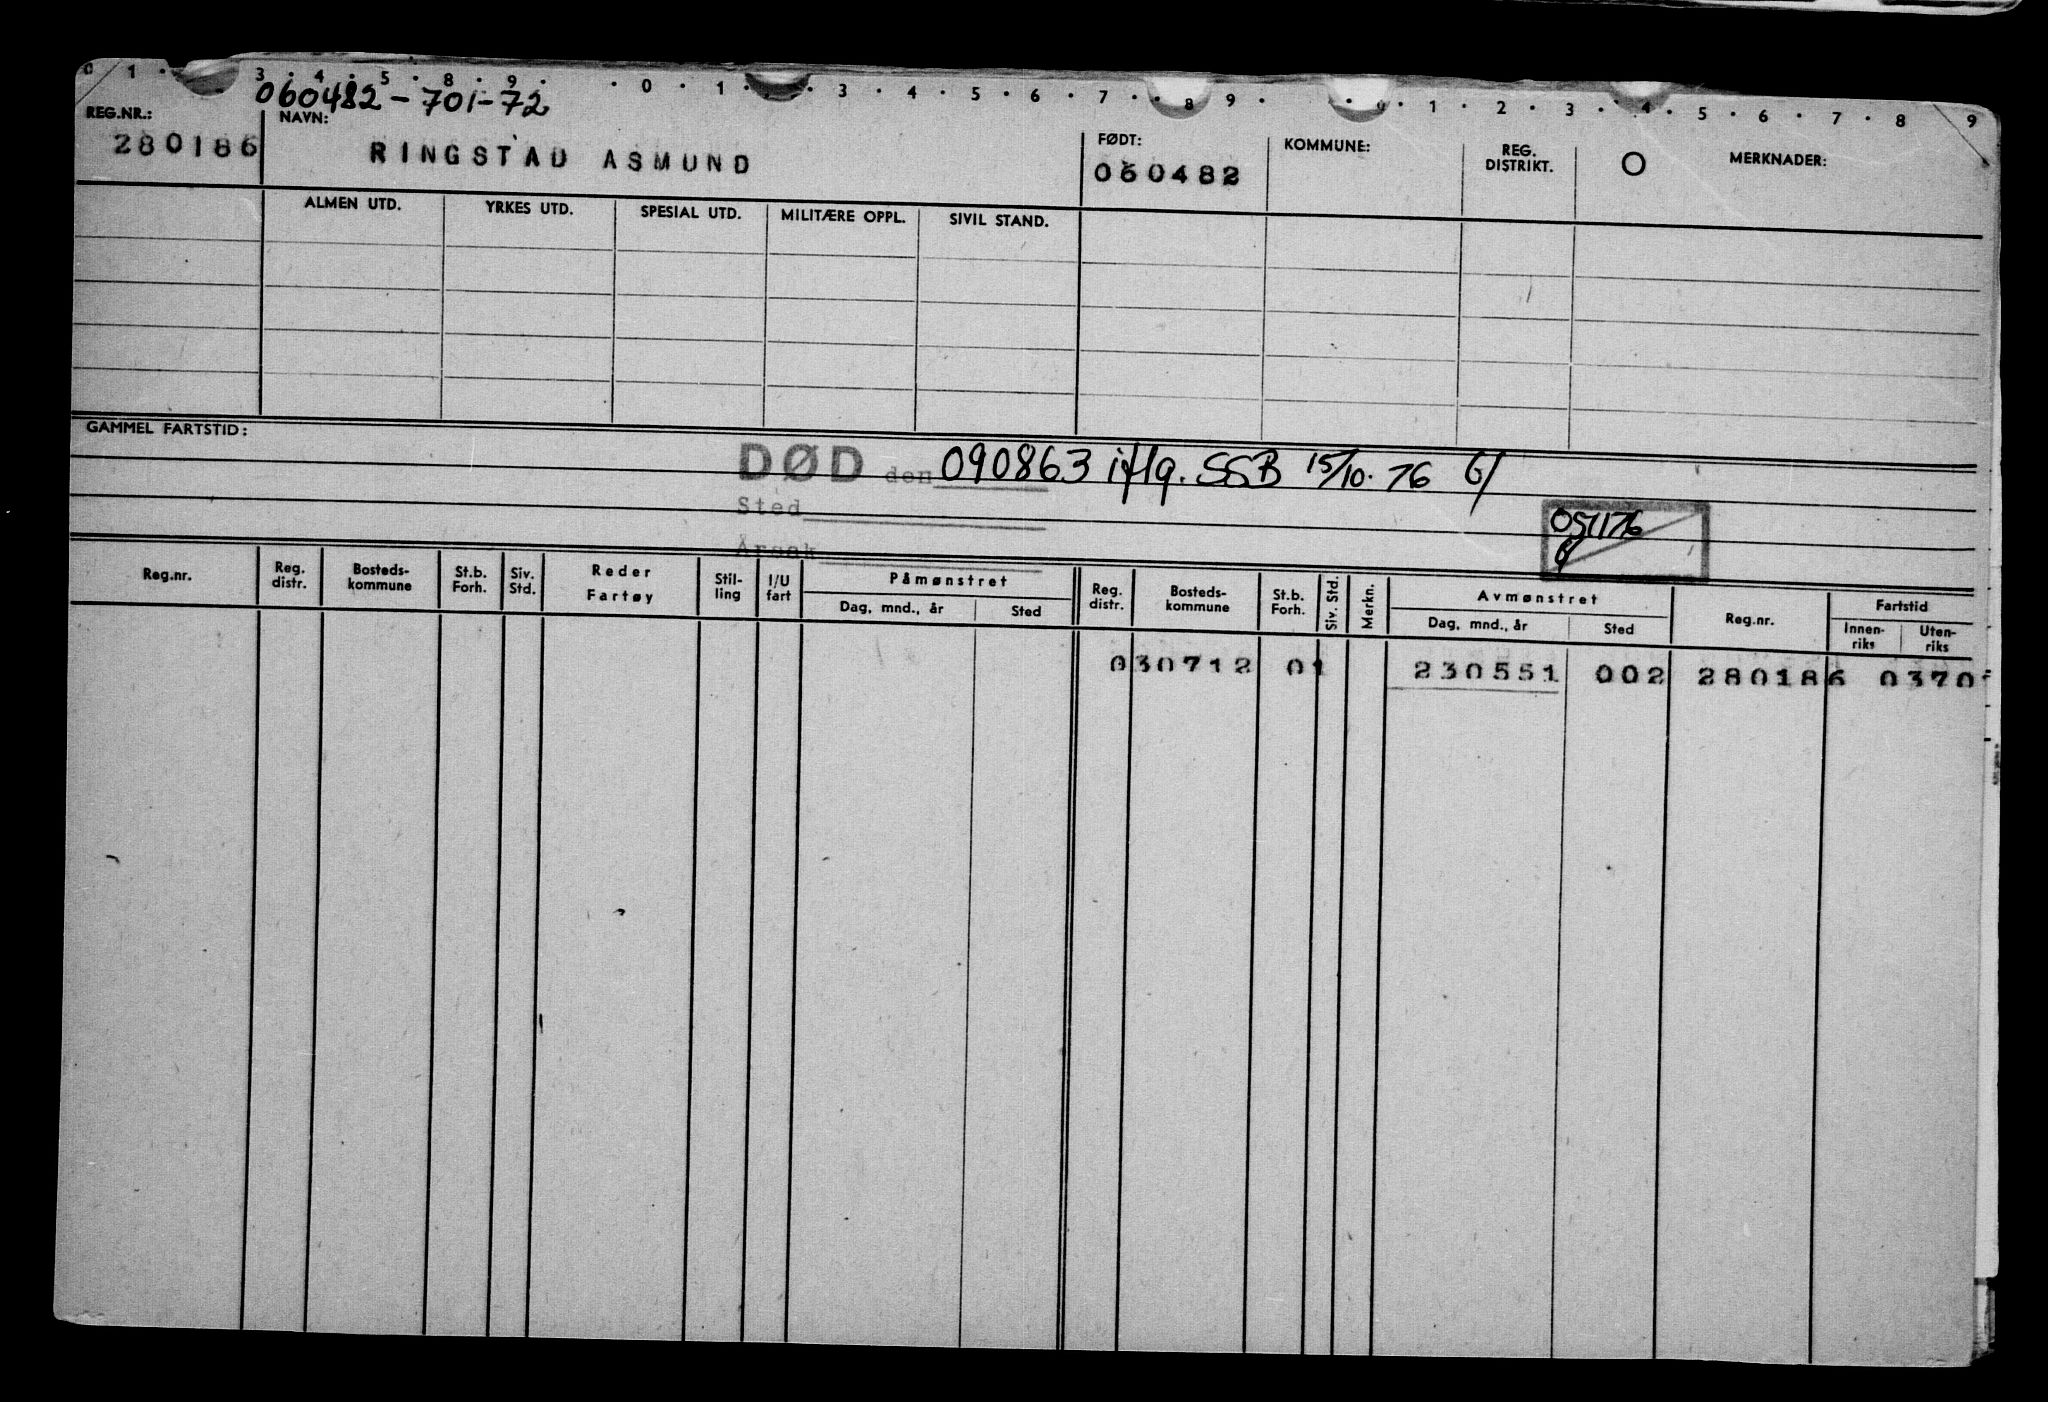 0 1 · 3 · 4 · 5 · 8 · 9 · · 0 · 1 · · 3 · 4 · 5 · 6 · 7 · · 8 9 · · 0 · 1 · 2 · 3 · · 4 · 5 · 6 · 7 · 8 9
060482-701-72
REG.NR.: NAVN: FØDT: KOMMUNE: REG. DISTRIKT. O MERKNADER:
280186 RINGSTAD ASMUND 060482
ALMEN UTD. YRKES UTD. SPESIAL UTD. MILITÆRE OPPL. SIVIL STAND.
GAMMEL FARTSTID:
DØD den 090863 iflg. SSB 15/10.76
Sted
Årsak
051176
Reg.nr. Reg. distr. Bosteds-kommune St.b. Forh. Siv. Std. Reder Fartøy Stil-ling I/U fart Påmønstret Reg. distr. Bosteds-kommune St.b. Forh. Siv. Std. Merkn. Avmønstret Reg.nr. Fartstid
Dag, mnd., år Sted Dag, mnd., år Sted Innen-riks Uten-riks
030712 01 230551 002 280186 0370